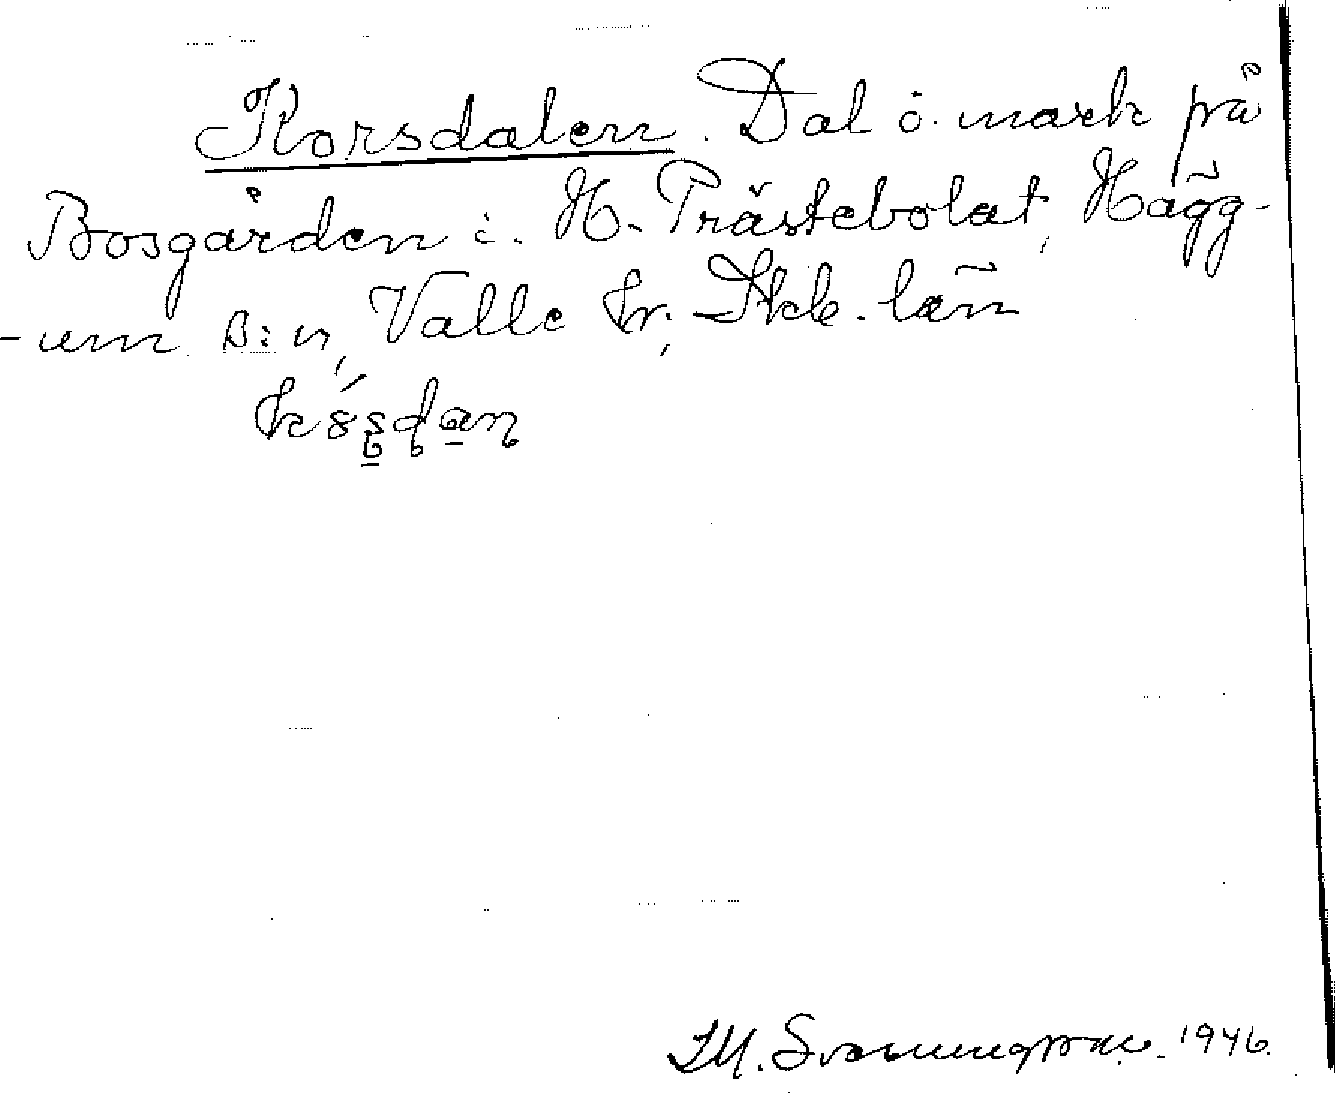 Korsdalen. Dal ö. mark på
Bosgården i. H. Prästebolat, Hägg-
-um s:n, Valle hr, Skb. län
H. Svenningsson. 1946.